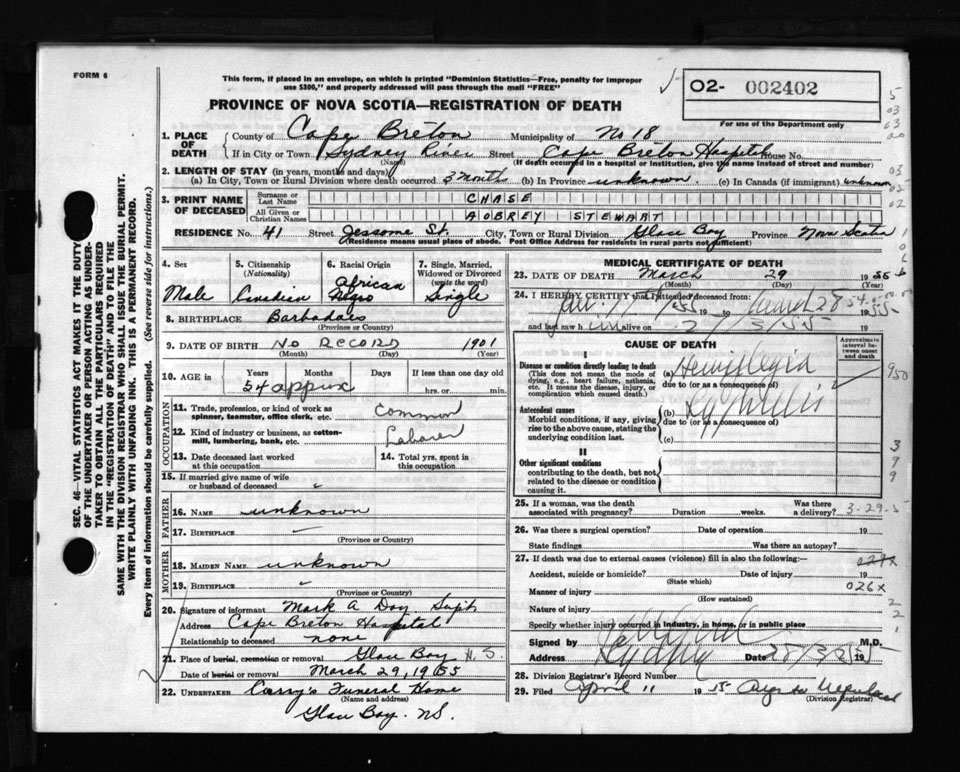 FORM 6
This form, if placed in an envelope, on which is printed "Dominion Statistics—Free, penalty for improper
use $300," and properly addressed will pass through the mail "FREE"
O2- 002402
For use of the Department only
PROVINCE OF NOVA SCOTIA—REGISTRATION OF DEATH
1. PLACE OF DEATH
County of Cape Breton Municipality of No 18
If in City or Town Sydney River Street Cape Breton Hospital House No.
(Name) (If death occurred in a hospital or institution, give the name instead of street and number)
2. LENGTH OF STAY (in years, months and days)
(a) In City, Town or Rural Division where death occurred 3 month (b) In Province unknown. (c) In Canada (if immigrant) unknown
3. PRINT NAME OF DECEASED
Surname or Last Name CHASE
All Given or Christian Names AOBREY STEWART
RESIDENCE No. 41 Street Jessome St. City, Town or Rural Division Glace Bay Province Nova Scotia
(Residence means usual place of abode. Post Office Address for residents in rural parts not sufficient)
4. Sex Male
5. Citizenship (Nationality) Canadian
6. Racial Origin African Negro
7. Single, Married, Widowed or Divorced (write the word) Single
8. BIRTHPLACE Barbadoes
(Province or Country)
9. DATE OF BIRTH No RECORD 1901
(Month) (Day) (Year)
10. AGE in Years Months Days If less than one day old
54 approx hrs. or min.
OCCUPATION
11. Trade, profession, or kind of work as spinner, teamster, office clerk, etc. Common
12. Kind of industry or business, as cotton-mill, lumbering, bank, etc. Laborer
13. Date deceased last worked at this occupation
14. Total yrs. spent in this occupation
15. If married give name of wife or husband of deceased
FATHER
16. NAME unknown
17. BIRTHPLACE
(Province or Country)
MOTHER
18. MAIDEN NAME unknown
19. BIRTHPLACE
(Province or Country)
20. Signature of informant Mark A Day Supt
Address Cape Breton Hospital
Relationship to deceased none
21. Place of burial, cremation or removal Glace Bay N.S.
Date of burial or removal March 29, 1955
22. UNDERTAKER Curry's Funeral Home
(Name and address)
Glace Bay. NS.
MEDICAL CERTIFICATE OF DEATH
23. DATE OF DEATH March 29 1955
(Month) (Day)
24. I HEREBY CERTIFY that I attended deceased from
Jan. 11 1955 to March 28 1955
and last saw him alive on 27/3/55 19
CAUSE OF DEATH
Approximate interval between onset and death
I
Disease or condition directly leading to death
(This does not mean the mode of dying, e.g., heart failure, asthenia, etc. It means the disease, injury, or complication which caused death.)
(a) Hemiplegia
due to (or as a consequence of)
Antecedent causes
Morbid conditions, if any, giving rise to the above cause, stating the underlying condition last.
(b) Syphilis
due to (or as a consequence of)
(c)
II
Other significant conditions
contributing to the death, but not related to the disease or condition causing it.
25. If a woman, was the death associated with pregnancy? Duration weeks. Was there a delivery?
3-29-5
26. Was there a surgical operation? Date of operation 19
State findings Was there an autopsy?
27. If death was due to external causes (violence) fill in also the following:—
Accident, suicide or homicide? Date of injury 19
(State which)
026x
Manner of injury
(How sustained)
Nature of injury
Specify whether injury occurred in industry, in home, or in public place
Signed by M.D.
Address Sydney Date 28/3/55 19
28. Division Registrar's Record Number
29. Filed April 11 1955
(Division Registrar)
SEC. 46—VITAL STATISTICS ACT MAKES IT THE DUTY
OF THE UNDERTAKER OR PERSON ACTING AS UNDER-
TAKER TO OBTAIN ALL THE PARTICULARS REQUIRED
IN THE "REGISTRATION OF DEATH" AND TO FILE THE
SAME WITH THE DIVISION REGISTRAR WHO SHALL ISSUE THE BURIAL PERMIT.
WRITE PLAINLY WITH UNFADING INK. THIS IS A PERMANENT RECORD.
Every item of information should be carefully supplied. (See reverse side for instructions.)